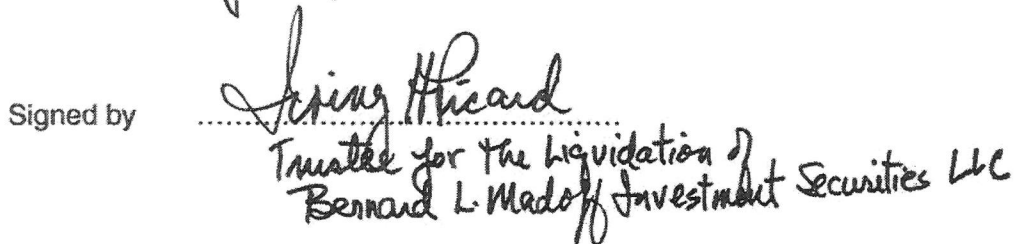 Signed by Irving H Picard
Trustee for the Liquidation of
Bernard L. Madoff Investment Securities LLC